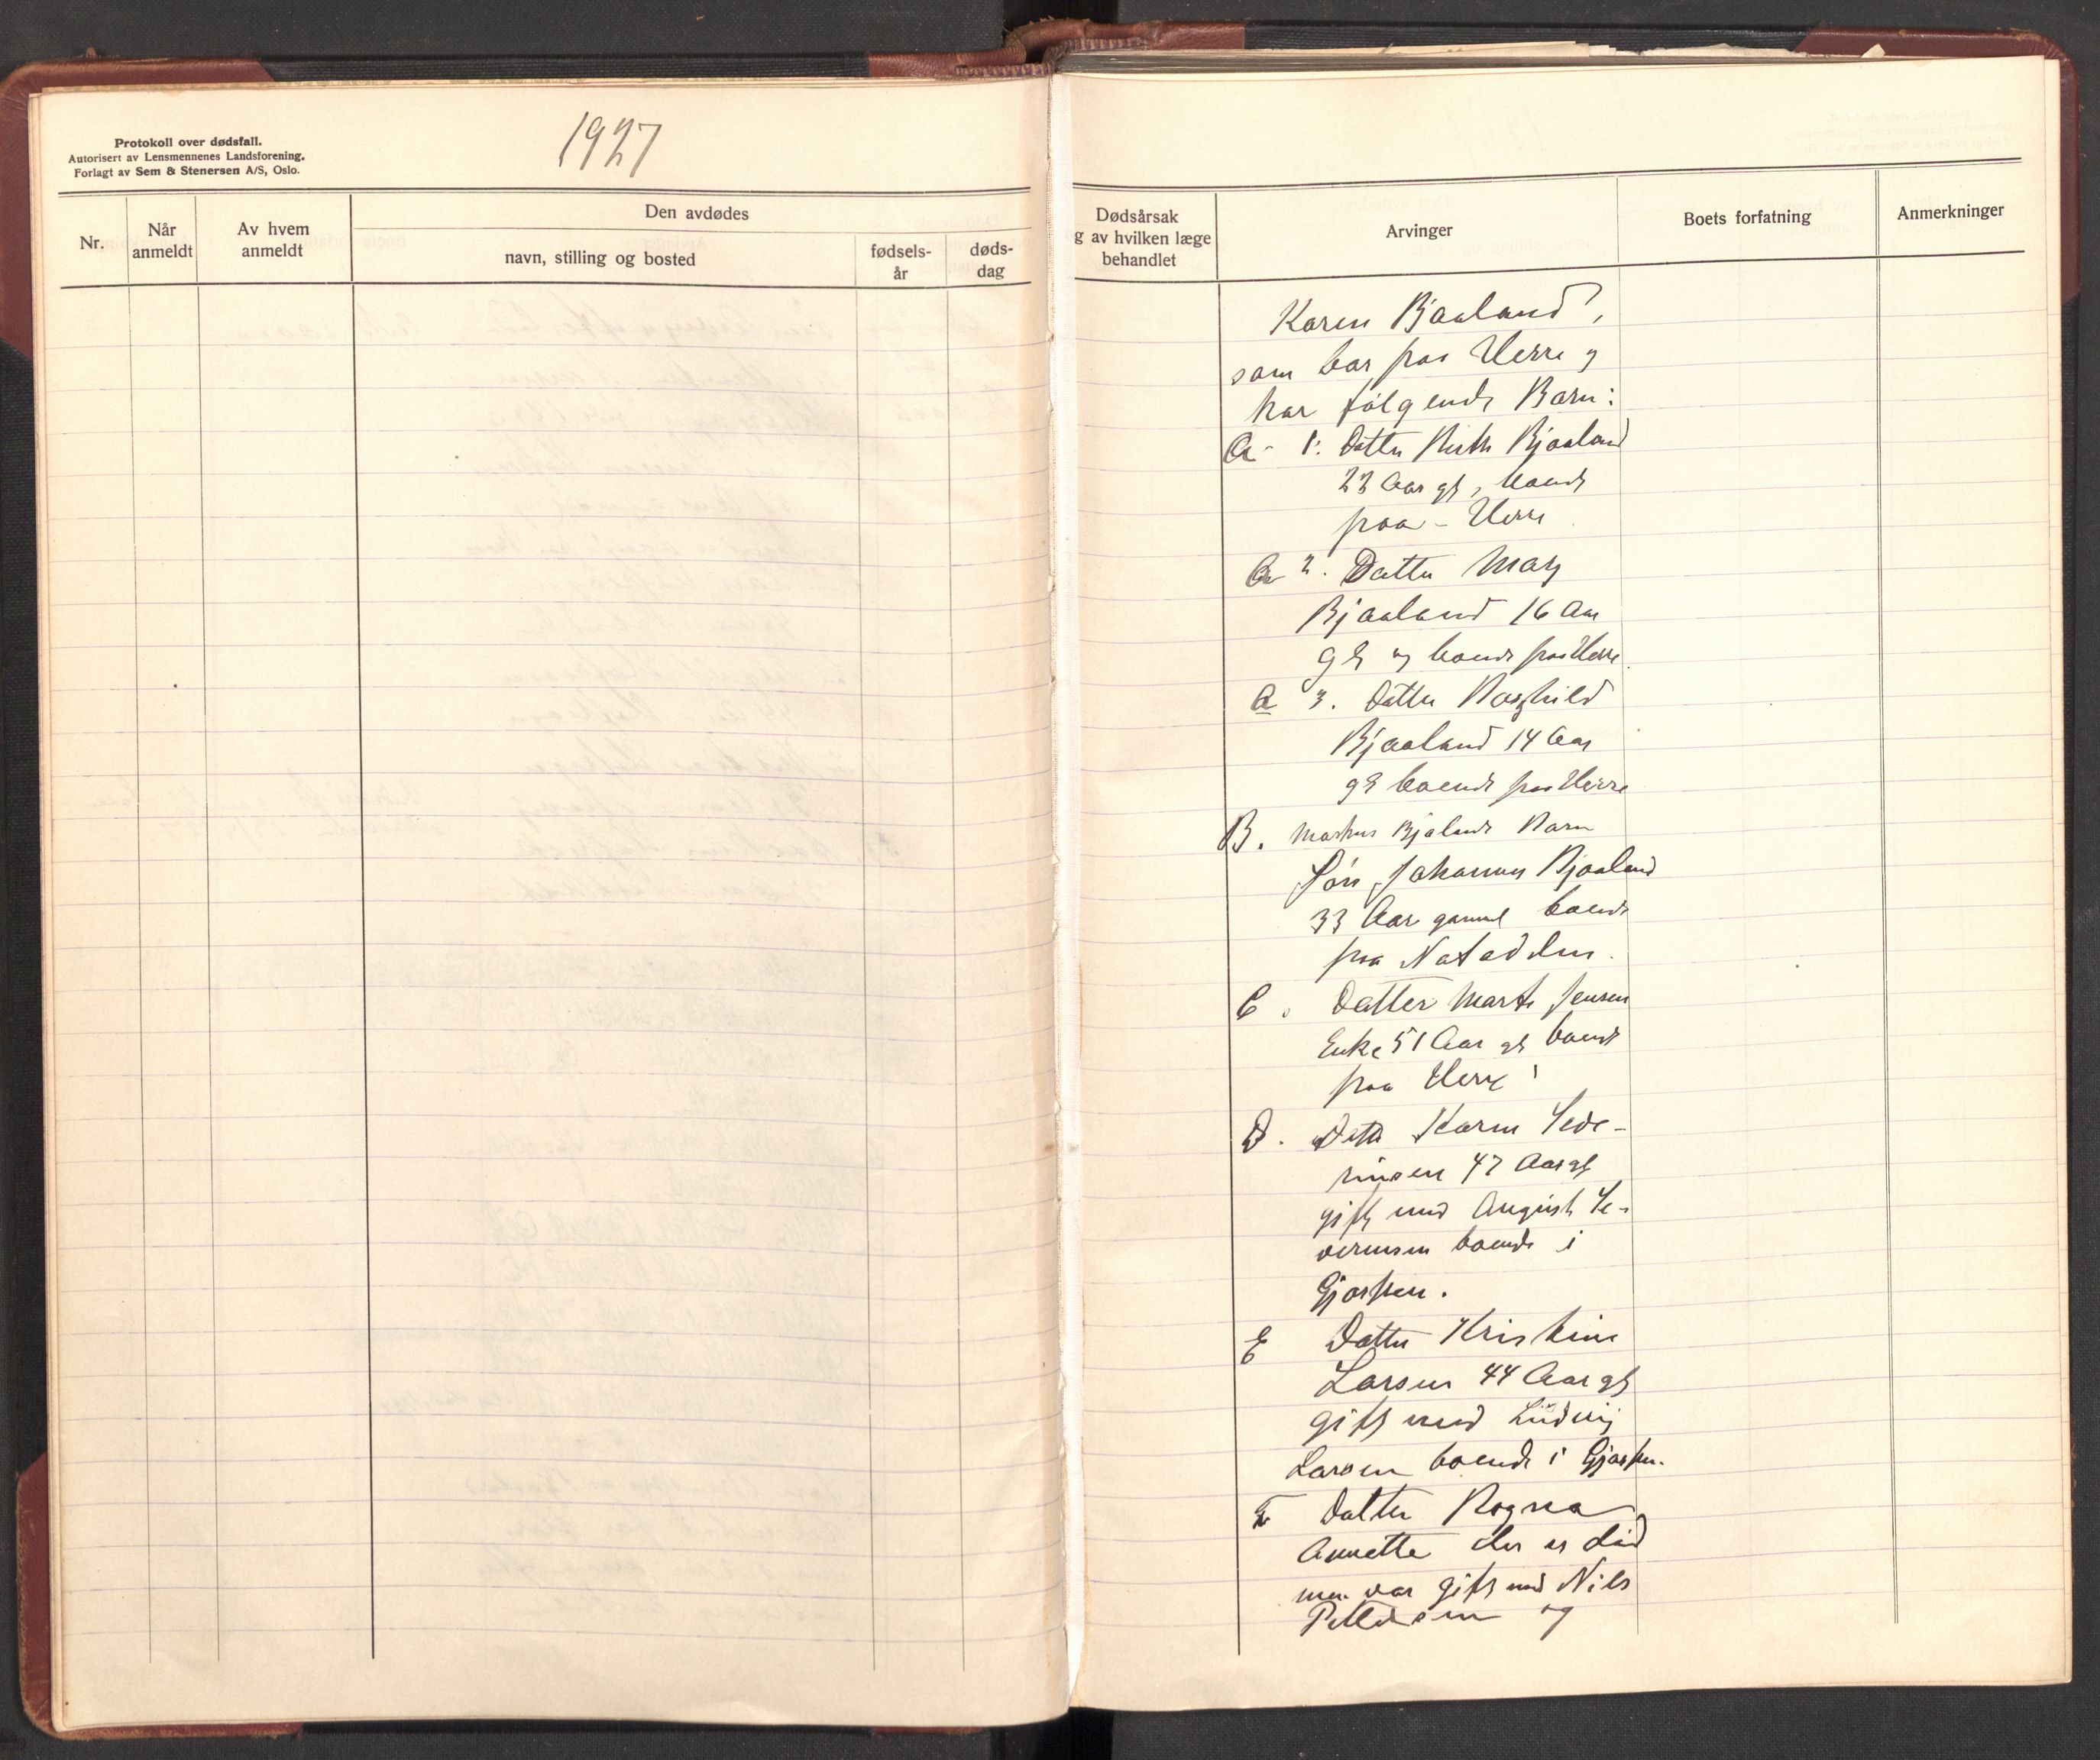 Protokoll over dødsfall.
Autorisert av Lensmennenes Landsforening.
Forlagt av Sem & Stenersen A/S, Oslo.
1927
Nr.
Når
anmeldt
Av hvem
anmeldt
Den avdødes
navn, stilling og bosted
fødsels-
år
døds-
dag
Dødsårsak
g av hvilken læge
behandlet
Arvinger
Boets forfatning
Anmerkninger
Karen Bjaaland,
som bor paa Herre og
har følgende Barn:
A - 1. Datter Ruth Bjaaland
23 Aar gl, boende
paa - Herre
A 2. Datter Mary
Bjaaland 16 Aar
gl og boende paa Herre.
A 3. Datter Ragnhild
Bjaaland 14 Aar
gl boende paa Herre
B. Bjalands Barn
Søn Johannes Bjaaland
33 Aar gammel boende
paa Notodden.
C. Datter Marte Jensen
Enke 51 Aar gl boende
paa Herre
D. Datter Karen Seve-
rinsen 47 Aar gl
gift med August Se-
verinsen boende i
Gjerpen.
E Datter Kristine
Larsen 44 Aar gl
gift med Ludvig
Larsen boende i Gjerpen.
F Datter Ragna
Annette der er død
men var gift med Nils
Pettersen og